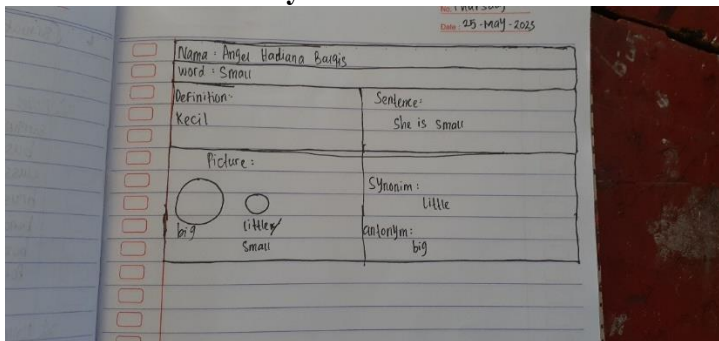 No: Thursday
Date: 25-May-2023
Nama: Angel Hadiana Balqis
word: Small
Definition:
Kecil
Sentence:
She is small
Picture:
big
little/
Small
Synonim:
Little
antonym:
big